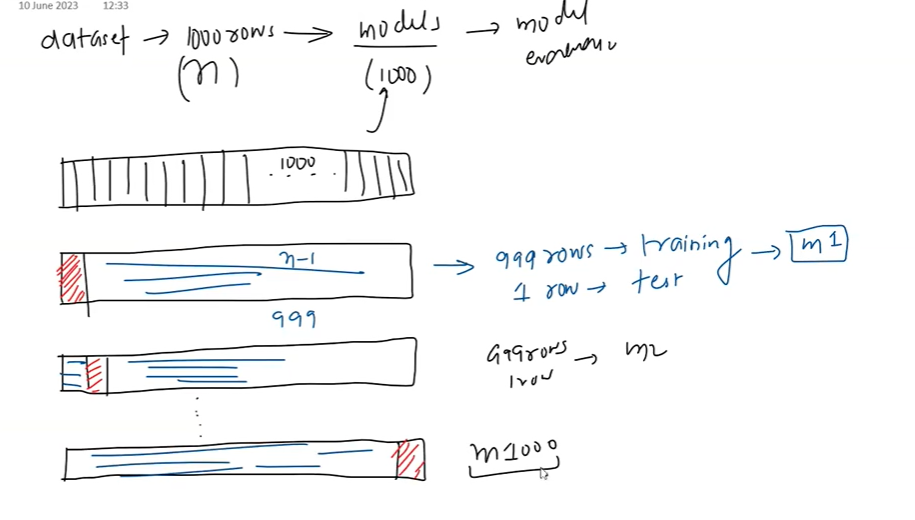 10 June 2023 12:33
dataset → 1000 rows → models → model
(n) (1000)
1000
n-1
999
999 rows → training → m1
1 row → test
999 rows → m2
1 row
m1000